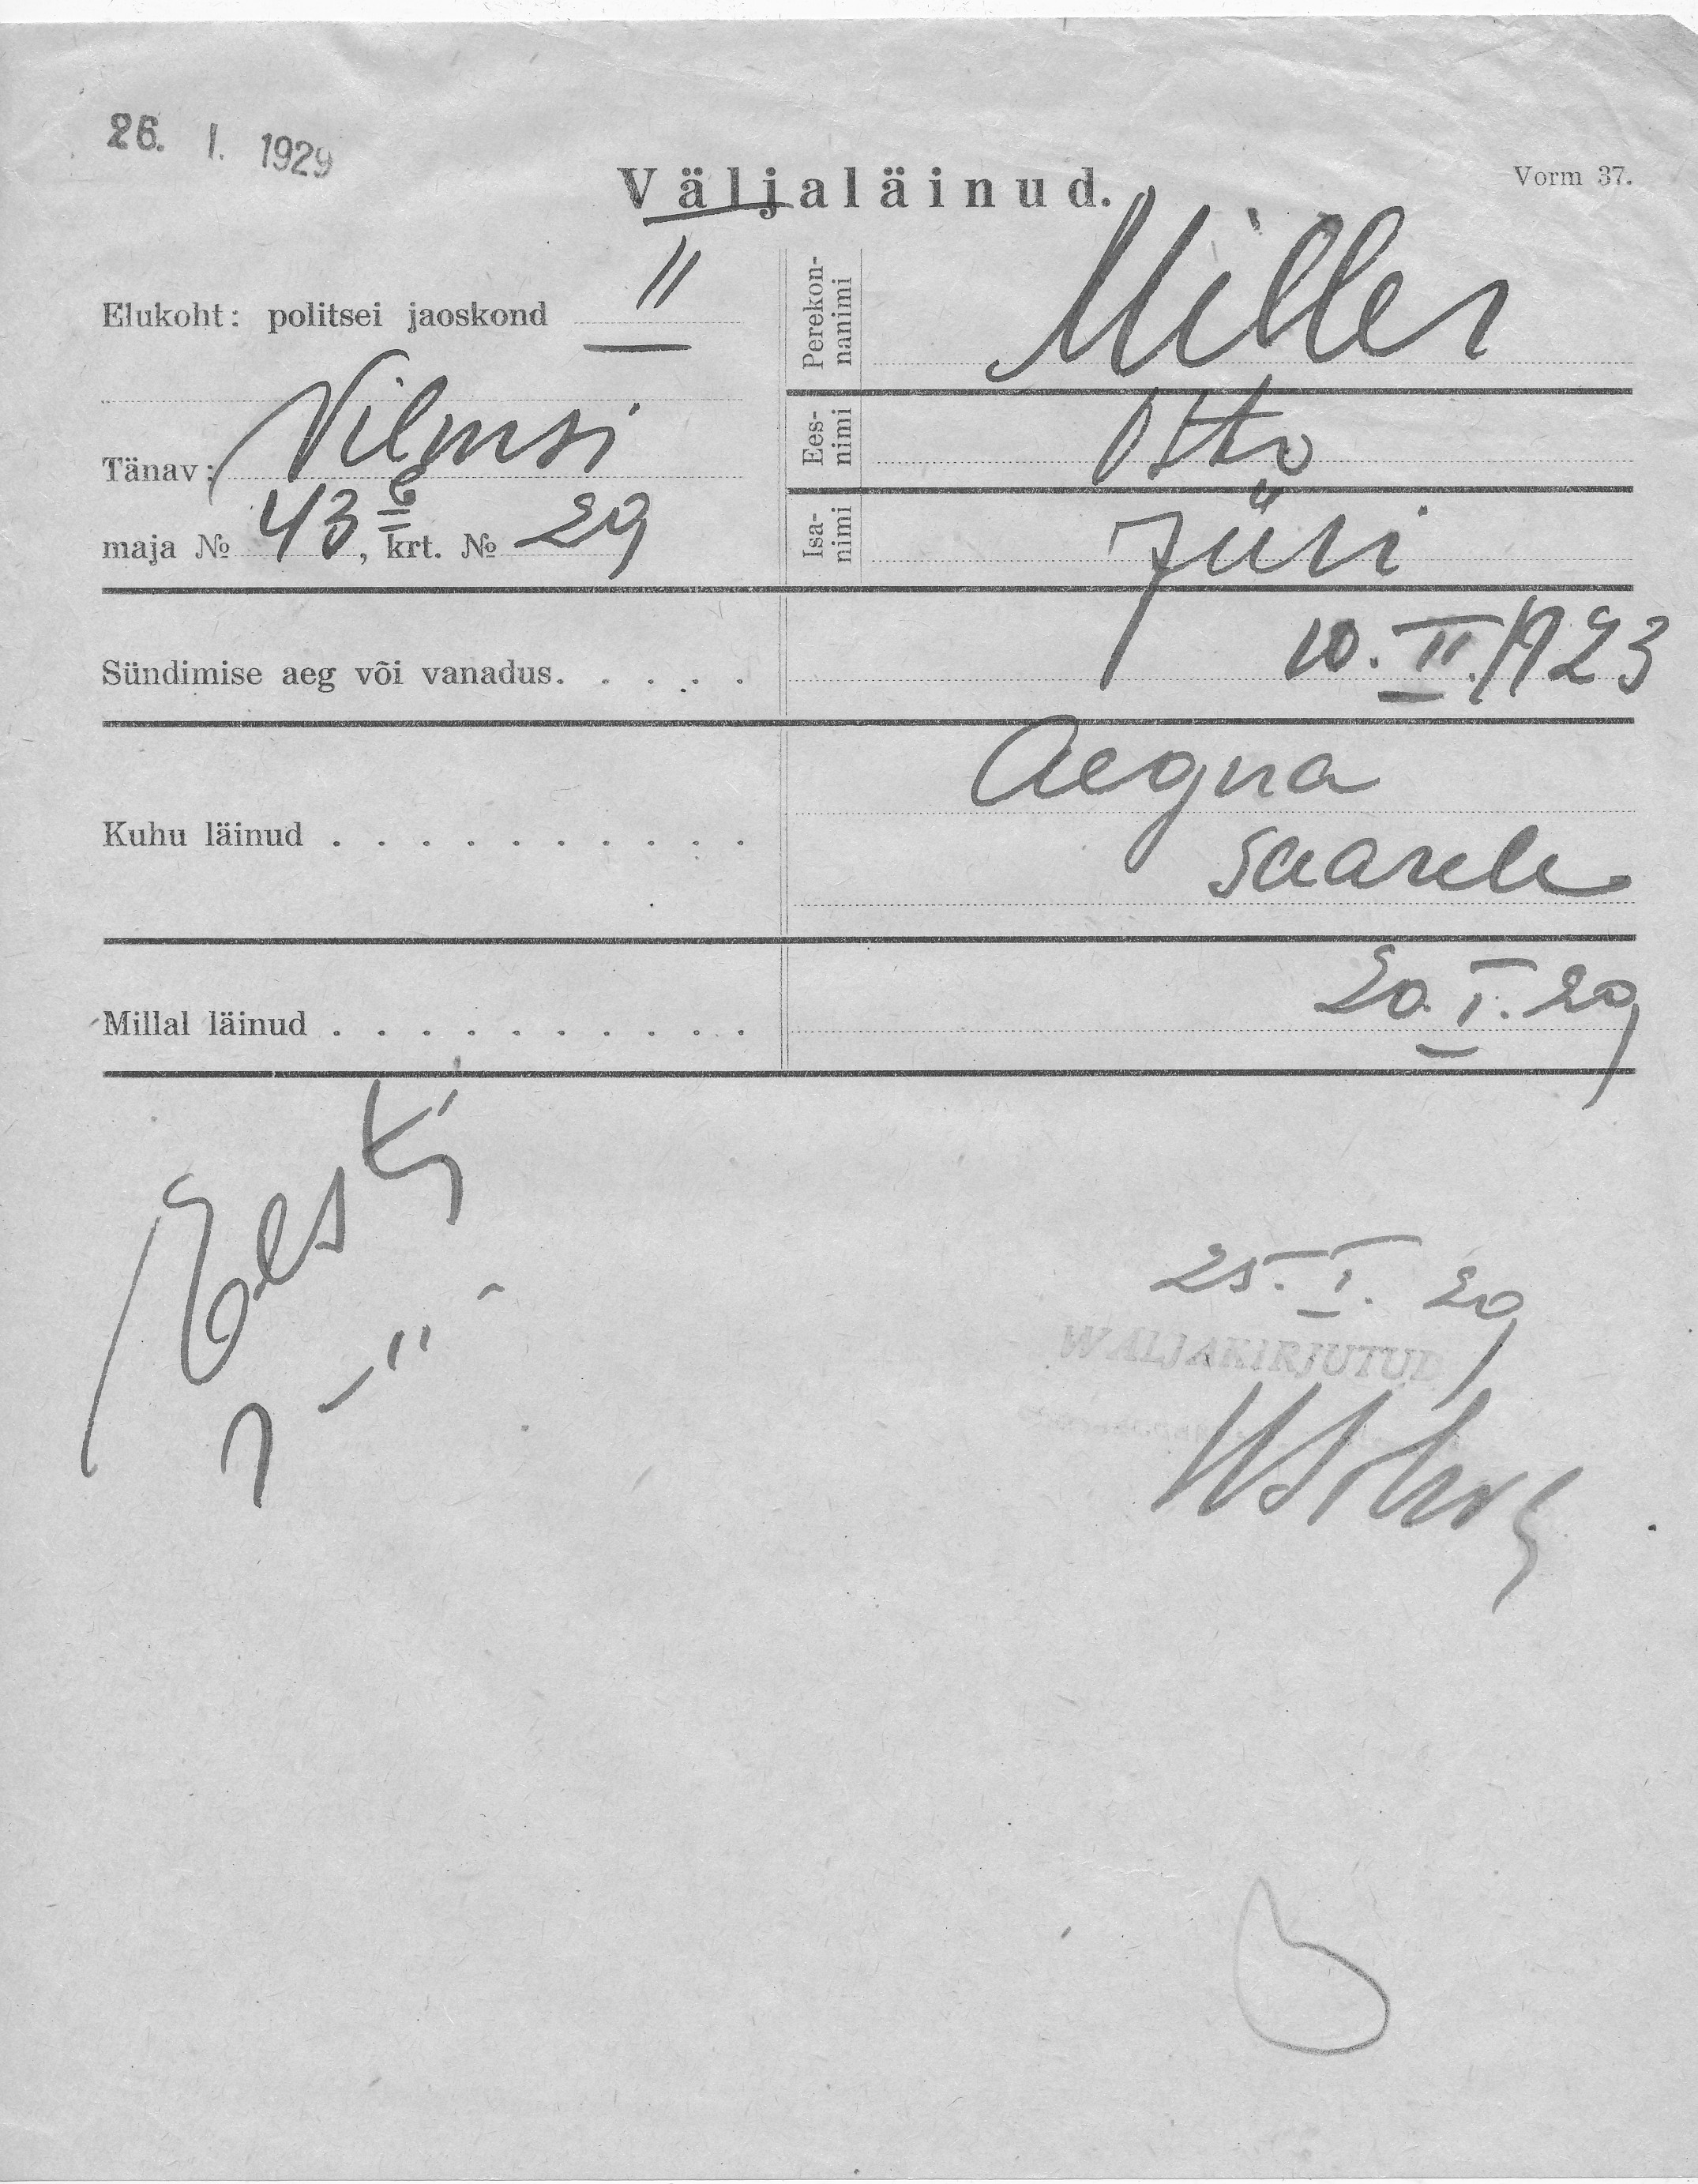 26. I. 1929
Väljaläinud.
Vorm 37.
Elukoht: politsei jaoskond II
Tänav: Vilmsi
maja № 43 6, krt. № 29
Perekon-
nanimi
Miller
Ees-
nimi
Otto
Isa-
nimi
Jüri
Sündimise aeg või vanadus. . . . . 10. II. 1923
Kuhu läinud . . . . . . . . . . Aegna
saarele
Millal läinud . . . . . . . . . . 20. I. 29
Eesti
25. I. 29
WALJAKIRJUTUD